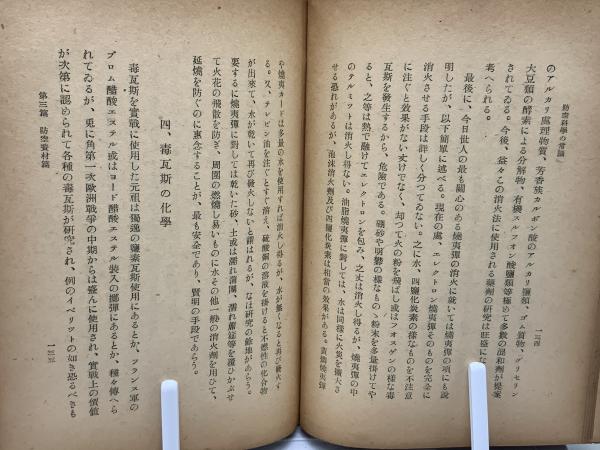 防空科學の常識
一三四
のアルカリ處理物質、芳香族カルボン酸のアルカリ鹽類、ゴム質物、グリセリン
大豆類の酵素による分解物、有機スルフォン酸鹽類等極めて多數の混和劑が提案
されてゐる。今後、益々この消火法に使用される藥劑の研究は旺盛になると
考へられる。
最後に、今日世人の最も關心のある燒夷彈の消火に就いては燒夷彈の項にも說
明したが、以下簡單に述べる。現在の處、エレクトロン燒夷彈そのものを完全に
消火させる手段は詳しく分つてゐない。之に水、四鹽化炭素の樣なものを不注意
に注ぐと效果がない丈けでなく、却つて火の粉を飛ばし或はフォスゲンの樣な毒
瓦斯を發生するから、危險である。硼砂や明礬の樣なもの〻粉末を多量掛けてや
ると、之等は熱で融けてエレクトロンを包み、之丈は消火し得るが、燒夷彈の中
のテルミットは消火し得ない。油脂燒夷彈に對しては、水は同樣に火災を擴大さ
せる恐れがあるが、泡沫消火劑及び四鹽化炭素は相當の效果がある。黃燐燒夷彈
や燒夷カードは多量の水を使用すれば消火し得るが、水が無くなると再び發火す
る。又、テレピン油を注ぐとすぐ消え、硫酸銅の溶液を掛けると不燃性の化合物
が出來て、水が乾いても再び發火しないと謂はれるが、なほ研究の餘地があらう。
要するに燒夷彈に對しては乾いた砂、土或は濡れ蒲團、濡れ蓆等を覆ひかぶせ
て火花の飛散を防ぎ、周圍の燃燒し易いものに水その他一般の消火劑を用ひて、
延燒を防ぐのに專念することが、最も安全であり、賢明の手段であらう。
四、毒瓦斯の化學
毒瓦斯を實戰に使用した元祖は獨逸の鹽素瓦斯使用にあるとか、フランス軍の
ブロム醋酸エステル或はヨード醋酸エステル裝入の擲彈にあるとか、種々傳へら
れてゐるが、兎に角第一次歐洲戰爭の中期からは盛んに使用され、實戰上の價値
が次第に認められて各種の毒瓦斯が硏究され、例のイペリットの如き恐るべきも
第三篇 防空資材篇
一三五